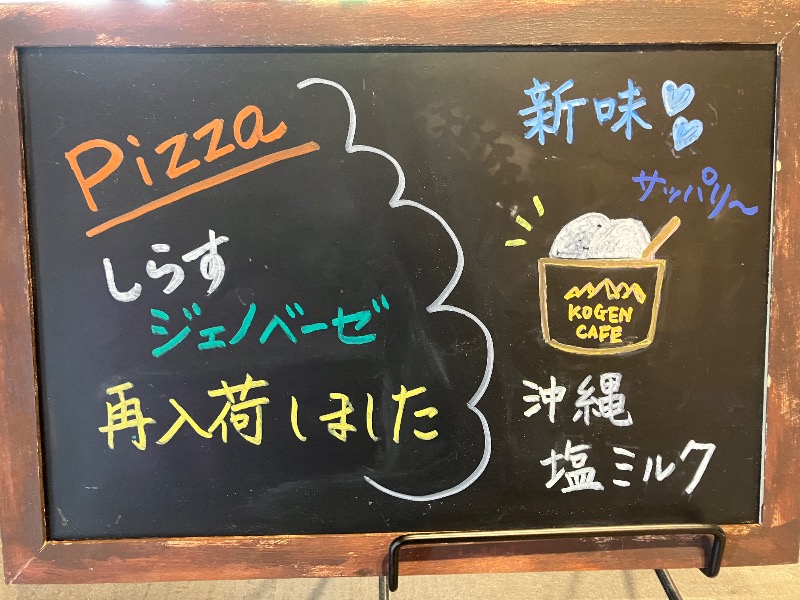 Pizza
しらす
ジェノベーゼ
再入荷しました
新味
サッパリ〜
KOGEN
CAFE
沖縄
塩ミルク